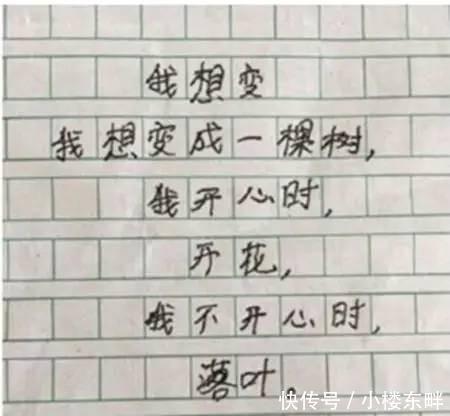 我想变
我想变成一棵树,
我开心时,
开花,
我不开心时,
落叶。
快传号/小楼东畔